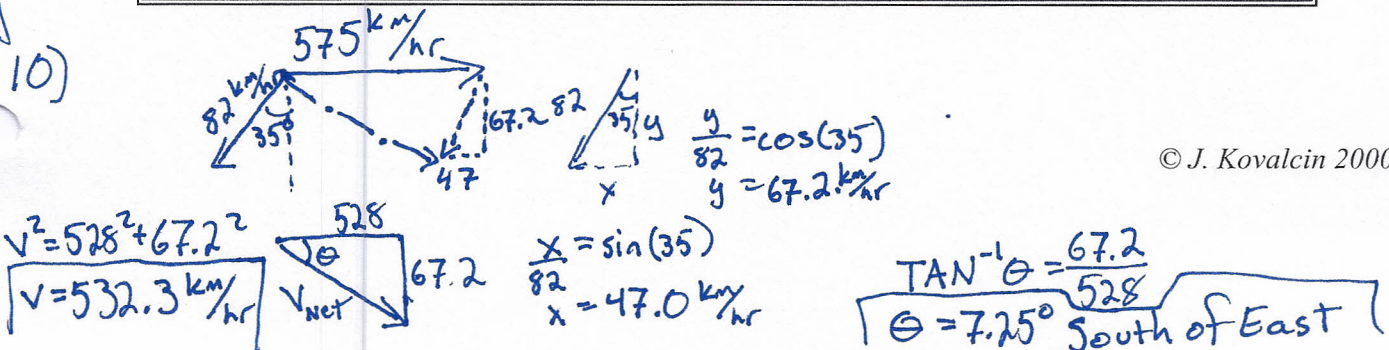 10)
575 km/hr
82 km/hr
35°
67.2
47
82
35
y
x
y/82 = cos(35)
y = 67.2 km/hr
© J. Kovalcin 2000
V² = 528² + 67.2²
V = 532.3 km/hr
528
θ
67.2
VNet
x/82 = sin(35)
x = 47.0 km/hr
TAN⁻¹θ = 67.2/528
θ = 7.25° South of East